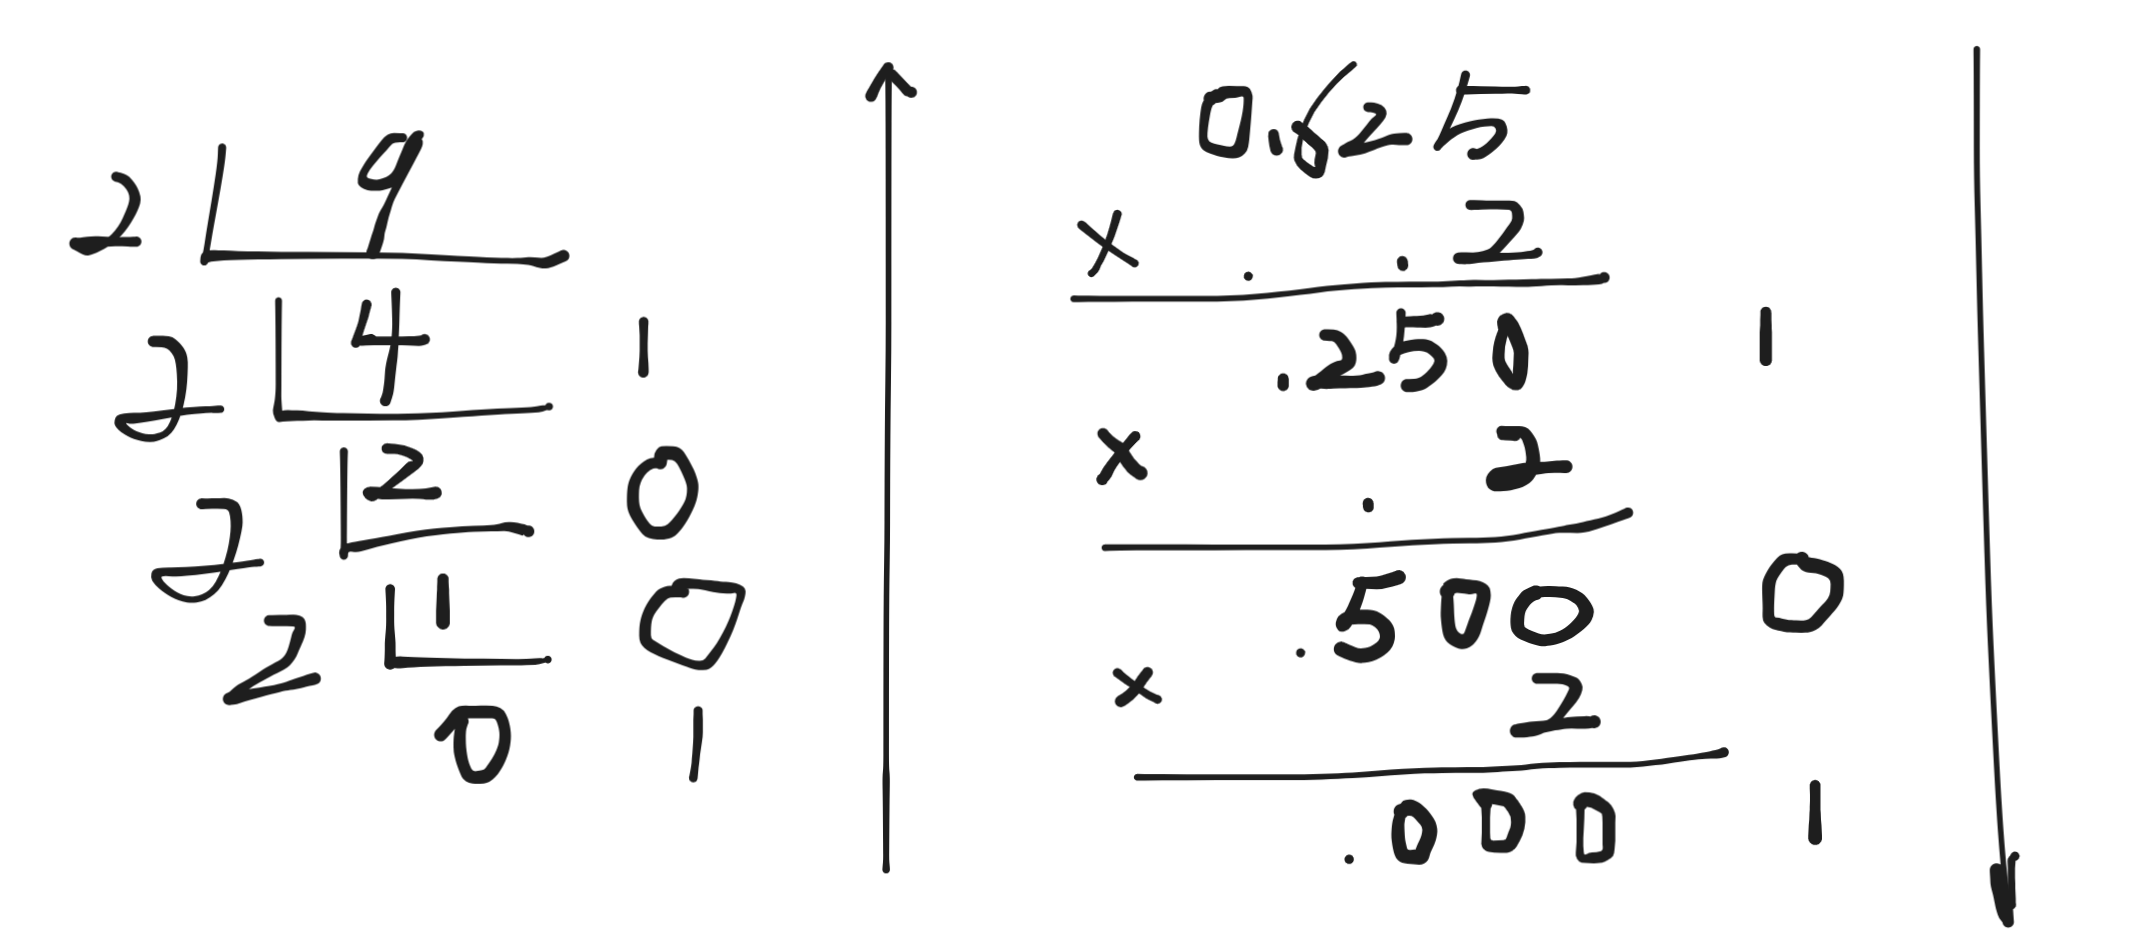 2 9
2 4 1
2 2 0
2 1 0
0 1
0.625
× 2
.250 1
× 2
.500 0
× 2
.000 1